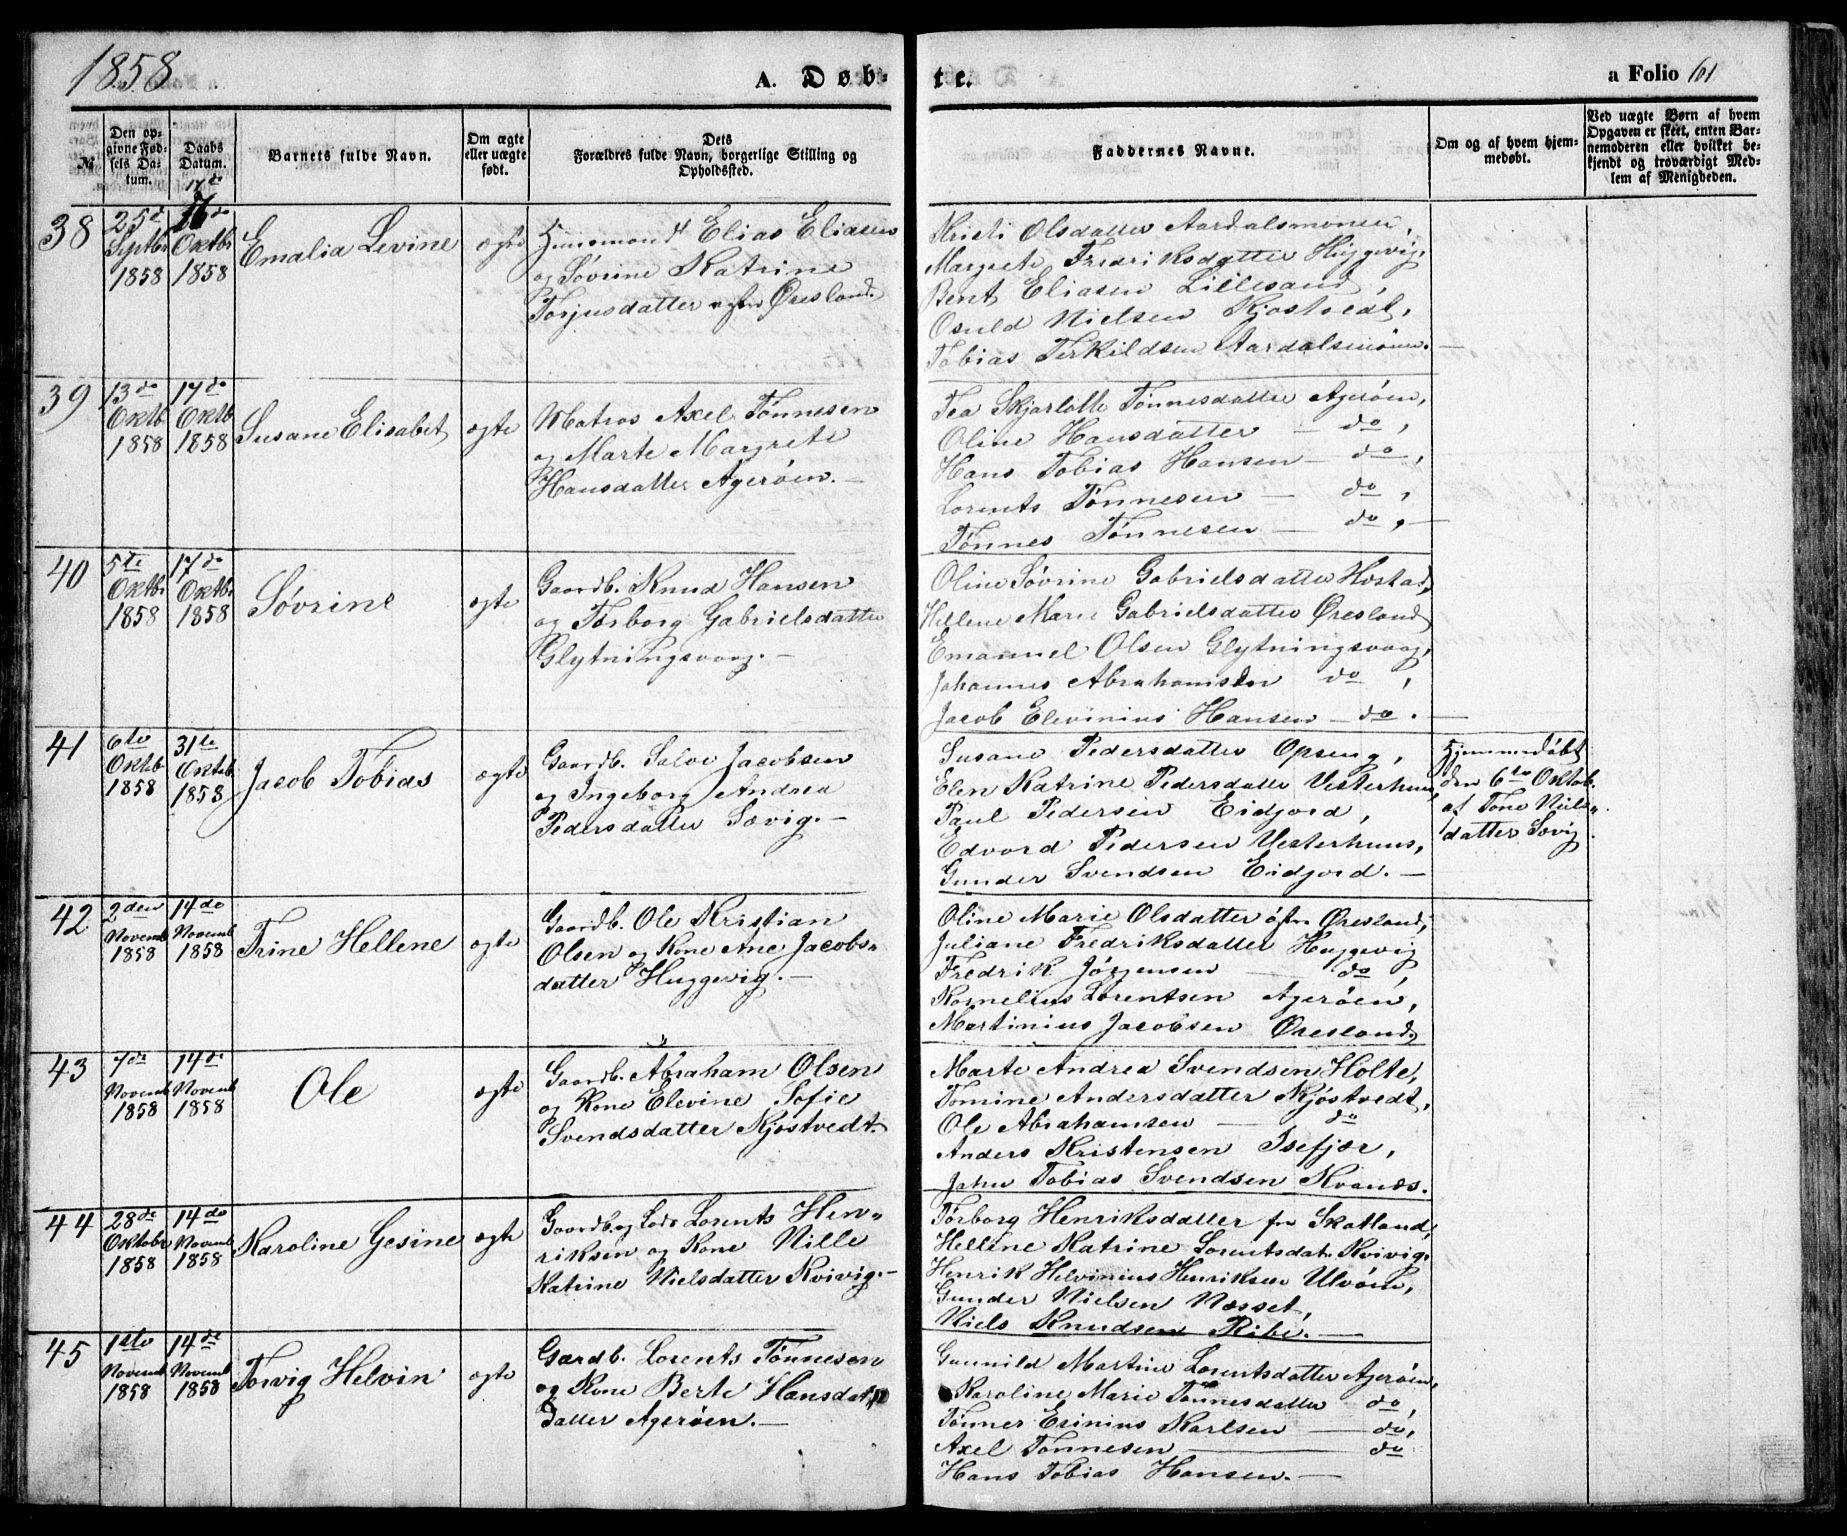 1858
A. Døb-
te.
a Folio 101
№
Den op-
givne Fød-
sels Da-
tum.
Daabs
Datum.
Barnets fulde Navn.
Om ægte
eller uægte
født.
Dets
Forældres fulde Navn, borgerlige Stilling og
Opholdssted.
Faddernes Navne.
Om og af hvem hjem-
medøbt.
Ved uægte Børn af hvem
Opgaven er skeet, enten Bar-
nemoderen eller hvilket be-
kjendt og troværdigt Med-
lem af Menigheden.
38
25de
Septbr
1858
17de
Oktbr
1858
Emalia Levine
ægte
Elias Eliasen
og Sövrine Katrine
Torjusdatter Øresland.
Kristi Olsdatter Aardalsmonen,
Margrete Fredriksdatter Huggevig,
Bent Eliasen Lillesand,
Osuld Nielsen Kjøstvedt,
Tobias Terkildsen Aardalsmonen.
39
13de
Oktb
1858
17de
Oktb
1858
Susane Elisabet
ægte
Matros Axel Tönnesen
og Marte Margrete
Hansdatter Ageröen.
Tea Skjarlotte Tönnesdatter Ageröen,
Oline Hansdatter — do,
Hans Tobias Hansen — do,
Lorents Tönnesen — do,
Tönnes Tönnesen — do,
40
5te
Oktbr
1858
17de
Oktbr
1858
Sövrine
ægte
Gaardb. Knud Hansen
og Torborg Gabrielsdatter
Glytningsvaag.
Oline Sövrine Gabrielsdatter Hostad,
Hellene Marie Gabrielsdatter Øresland
Emanuel Olsen Glytningsvaag,
Johannes Abrahamsen do,
Jacob Elevinius Hansen — do.
41
6te
Oktb
1858
31te
Oktb
1858
Jacob Tobias
ægte
Gaardb. Salve Jacobsen
og Ingeborg Andrea
Pedersdatter Sævig.
Susane Pedersdatter Opseng,
Elen Katrine Pedersdatter Vesterhuus,
Paul Pedersen Eidjord,
Edvard Pedersen Vesterhuus,
Gunder Svendsen Eidjord.
Hjemmedöbt
den 6te Oktob.
af Tone Niels-
datter Sævig.
42
2den
Novemb
1858
14de
Novemb
1858
Trine Hellene
ægte
Gaardb. Ole Kristian
Olsen og Kone Ane Jacobs-
datter Huggevig.
Oline Marie Olsdatter Øresland,
Juliane Fredriksdatter Huggevig
Fredrik Jörgensen — do,
Kornelius Lorentsen Ageröen,
Martinius Jacobsen Øresland,
43
7de
Novemb
1858
14de
Novemb
1858
Ole
ægte
Gaardb. Abraham Olsen
og Kone Elevine Sofie
Svendsdatter Kjöstvedt.
Marte Andrea Svendsen Holte,
Tomine Andersdatter Kjöstvedt,
Ole Abrahamsen — do
Anders Kristensen Isefjær,
John Tobias Svendsen Kvanes.
44
28de
Oktobr
1858
14de
Novemb
1858
Karoline Gesine
ægte
Gaardb. og Lods Lorents Hen-
riksen og Kone Nille
Katrine Nielsdatter Kvivig.
Torborg Henriksdatter fra Skatland,
Hellene Katrine Lorentsdat. Kvivig,
Henrik Helvinius Henriksen Ulvöen,
Gunder Nielsen Næsset,
Niels Knudsen Ribe.
45
1ste
Novemb
1858
14de
Novemb
1858
Torvig Helvin
ægte
Gaardb. Lorents Tönnesen
og Kone Berte Hansdat
datter Ageröen.
Gunnild Martine Lorentsdatter Ageröen,
Karoline Marie Tönnesdatter do,
Tönnes Erinius Karlsen — do,
Axel Tönnesen — do
Hans Tobias Hansen.